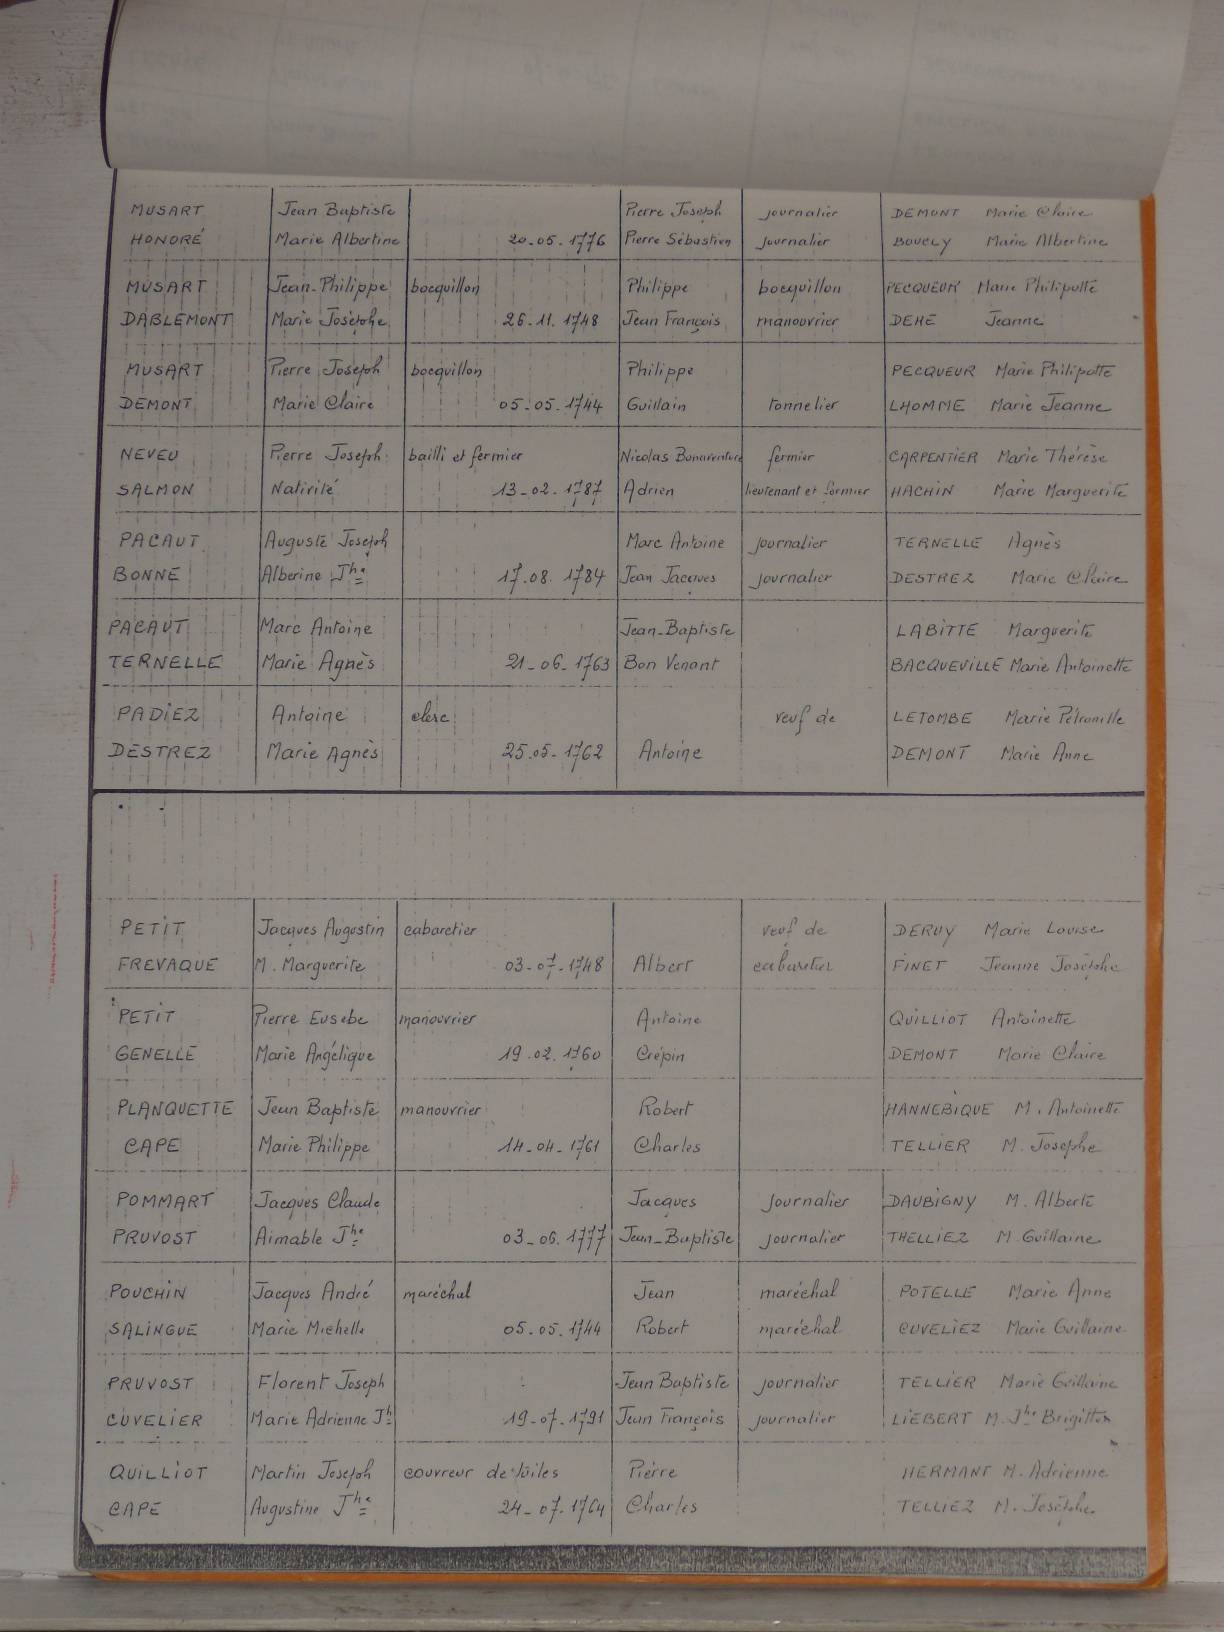 MUSART Jean Baptiste Pierre Joseph journalier DEMONT Marie Claire
HONORÉ Marie Albertine 20.05.1776 Pierre Sébastien journalier BOUCLY Marie Albertine
MUSART Jean-Philippe bocquillon Philippe bocquillon PECQUEUR Marie Philipotte
DABLEMONT Marie Josèphe 26.11.1748 Jean François manouvrier DEHE Jeanne
MUSART Pierre Joseph bocquillon Philippe PECQUEUR Marie Philipotte
DEMONT Marie Claire 05.05.1744 Guillain tonnelier LHOMME Marie Jeanne
NEVEU Pierre Joseph bailli et fermier Nicolas Bonaventure fermier CARPENTIER Marie Thérèse
SALMON Nativité 13-02.1787 Adrien lieutenant et fermier HACHIN Marie Marguerite
PACAUT Auguste Joseph Marc Antoine journalier TERNELLE Agnès
BONNE Alberine Jhe 17.08.1784 Jean Jacques journalier DESTREZ Marie Claire
PACAUT Marc Antoine Jean-Baptiste LABITTE Marguerite
TERNELLE Marie Agnès 21-06-1763 Bon Venant BACQUEVILLE Marie Antoinette
PADIEZ Antoine clerc veuf de LETOMBE Marie Pétronille
DESTREZ Marie Agnès 25.05-1762 Antoine DEMONT Marie Anne
PETIT Jacques Augustin cabaretier veuf de DERUY Marie Louise
FREVAQUE M. Marguerite 03-07-1748 Albert cabaretier FINET Jeanne Josèphe
PETIT Pierre Eusebe manouvrier Antoine QUILLIOT Antoinette
GENELLE Marie Angélique 19.02.1760 Crépin DEMONT Marie Claire
PLANQUETTE Jean Baptiste manouvrier Robert HANNEBIQUE M. Antoinette
CAPE Marie Philippe 14-04-1761 Charles TELLIER M. Josephe
POMMART Jacques Claude Jacques journalier DAUBIGNY M. Alberte
PRUVOST Aimable Jhe 03-06.1777 Jean-Baptiste journalier THELLIEZ M. Guillaine
POUCHIN Jacques André maréchal Jean maréchal POTELLE Marie Anne
SALINGUE Marie Michelle 05.05.1744 Robert maréchal CUVELIEZ Marie Guillaine
PRUVOST Florent Joseph Jean Baptiste journalier TELLIER Marie Guillaine
CUVELIER Marie Adrienne Jh 19-07.1791 Jean François journalier LIEBERT M. Jhe Brigitte
QUILLIOT Martin Joseph couvreur de tuiles Pierre HERMANT M. Adrienne
CAPE Augustine Jhe 24-07.1764 Charles TELLIEZ M. Josèphe